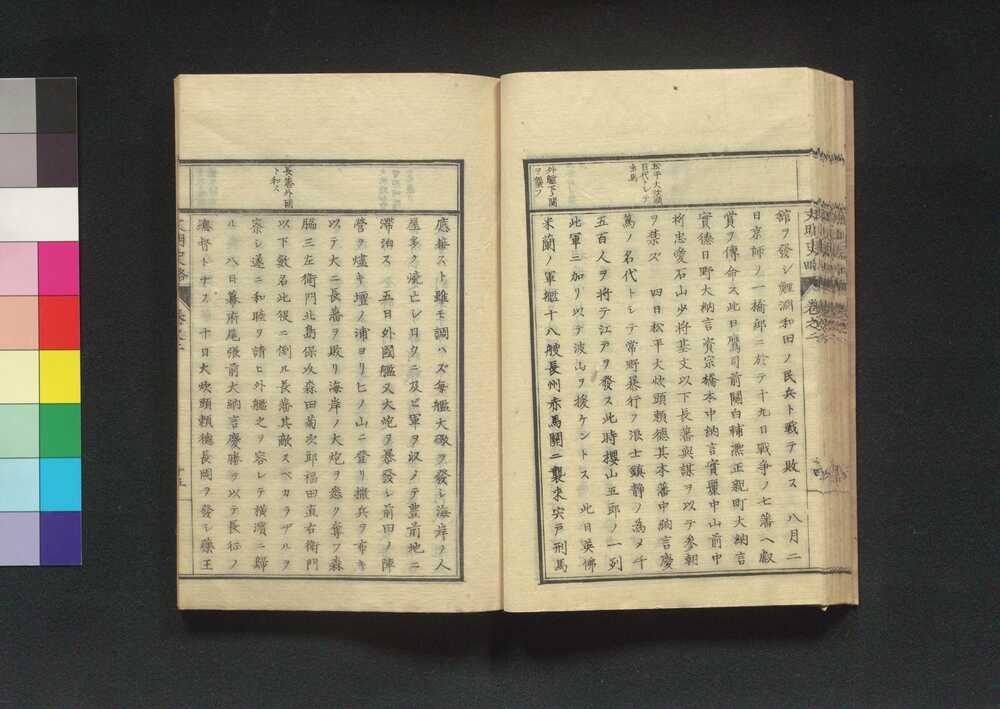 館ヲ發シ鯉淵和田ノ民兵ト戰テ敗ス 八月二
日京師ノ一橋邸ニ於テ十九日戰争ノ七藩ヘ叡
賞ヲ傳命ス此日鷹司前關白輔凞正親町大納言
實德日野大納言資宗橋本中納言實麗中山前中
將忠愛石山少將基文以下長藩與謀ヲ以テ参朝
ヲ禁ズ 四日松平大炊頭頼德其本藩中納言慶
篤ノ名代トシテ常野暴行ヲ浪士鎮静ノ為メ千
五百人ヲ將テ江戸ヲ發ス此時櫻山五郎ノ一列
此軍ニ加リ以テ波山ヲ援ケントス 此日英佛
米蘭ノ軍艦十八艘長州赤馬關ニ襲来宍戸刑馬
松平大炊頭
目代トシテ
出馬
外艦下ノ關
ヲ襲フ
應接スト雖モ調ヘズ毎艦大礮ヲ發シ海岸ノ人
屋多ク燒亡シ日夕ニ及ビ軍ヲ収メテ豊前地ニ
滞泊ス 五日外國艦又大炮ヲ暴發シ前田ノ陣
營ヲ燼キ壇ノ浦ヨリヒノ山ニ登リ撒兵ヲ布キ
以テ大ニ長藩ヲ敗リ海岸ノ大炮ヲ悉ク奪フ森
脇三左衛門北島保次森田菊次郎福田直右衛門
以下數名此役ニ倒ル長藩其敵スベカラザルヲ
察シ遂ニ和睦ヲ請ヒ外艦之ヲ容レテ横濱ニ歸
ル 八日幕府尾張前大納言慶勝ヲ以テ長征ノ
總督トナス 十日大炊頭頼德長岡ヲ發シ藥王
長藩外國
ト和ス